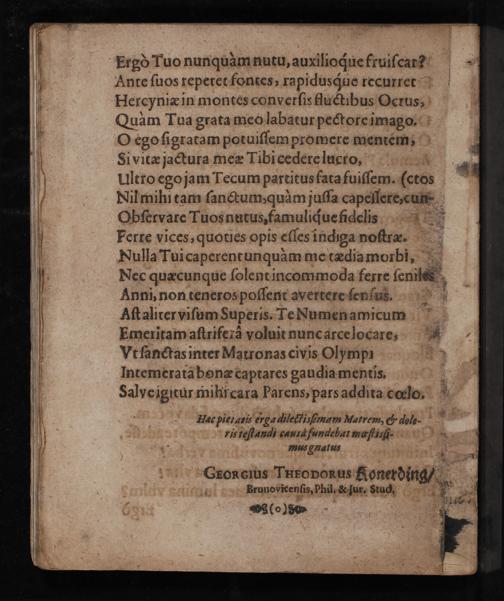 Ergò Tuo nunquàm nutu, auxilioq́ue fruiscar?
Ante suos repetet fontes, rapidusq́ue recurret
Hercyniæ in montes conversis fluctibus Ocrus,
Quàm Tua grata meo labatur pectore imago.
O ego si gratam potuissem promere mentem,
Si vitæ jactura meæ Tibi cedere lucro,
Ultro ego jam Tecum partitus fata fuissem. (ctos
Nil mihi tam sanctum, quàm jussa capessere, cun-
Observare Tuos nutus, famuliq́ue fidelis
Ferre vices, quoties opis esses indiga nostræ.
Nulla Tui caperent unquàm me tædia morbi,
Nec quæcunque solent incommoda ferre seniles
Anni, non teneros possent avertere sensus.
Ast aliter visum Superis. Te Numen amicum
Emeritam astriferâ voluit nunc arce locare,
Vt sanctas inter Matronas civis Olympi
Intemerata bonæ captares gaudia mentis.
Salve igitur mihi cara Parens, pars addita cœlo.
Hac pietatis erga dilectissimam Matrem, & dolo-
ris testandi causâ fundebat mœstissi-
mus gnatus
GEORGIUS THEODORUS Konerding/
Brunovicensis, Phil. & Jur. Stud.
(o)